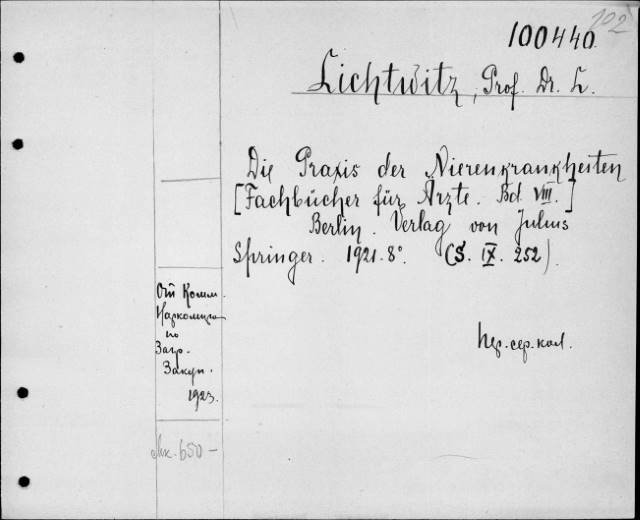 102
100440.
Lichtwitz, Prof. Dr. L.
Die Praxis der Nierenkrankheiten
[Fachbücher für Ärzte. Bd. VIII.]
Berlin. Verlag von Julius
Springer. 1921. 8°. (S. IX. 252).
От Комм.
Наркомпра
по
Загр.
Закуп.
1923.
пер. сер. кол.
Мк. 650 –